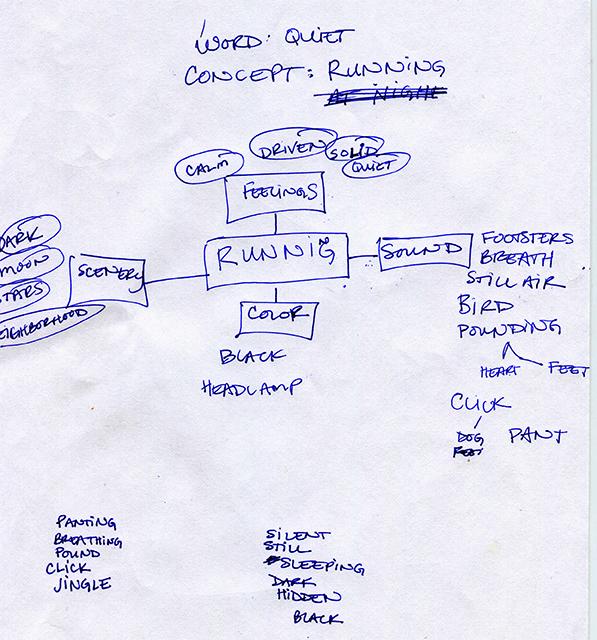 WORD: QUIET
CONCEPT: RUNNING
AT NIGHT
CALM
DRIVEN
SOLID
QUIET
FEELINGS
RUNNIG
SCENERY
DARK
MOON
STARS
NEIGHBORHOOD
COLOR
BLACK
HEADLAMP
SOUND
FOOTSTERS
BREATH
STILL AIR
BIRD
POUNDING
HEART FEET
CLICK
DOG PANT
FEET
PANTING
BREATHING
POUND
CLICK
JINGLE
SILENT
STILL
SLEEPING
DARK
HIDDEN
BLACK